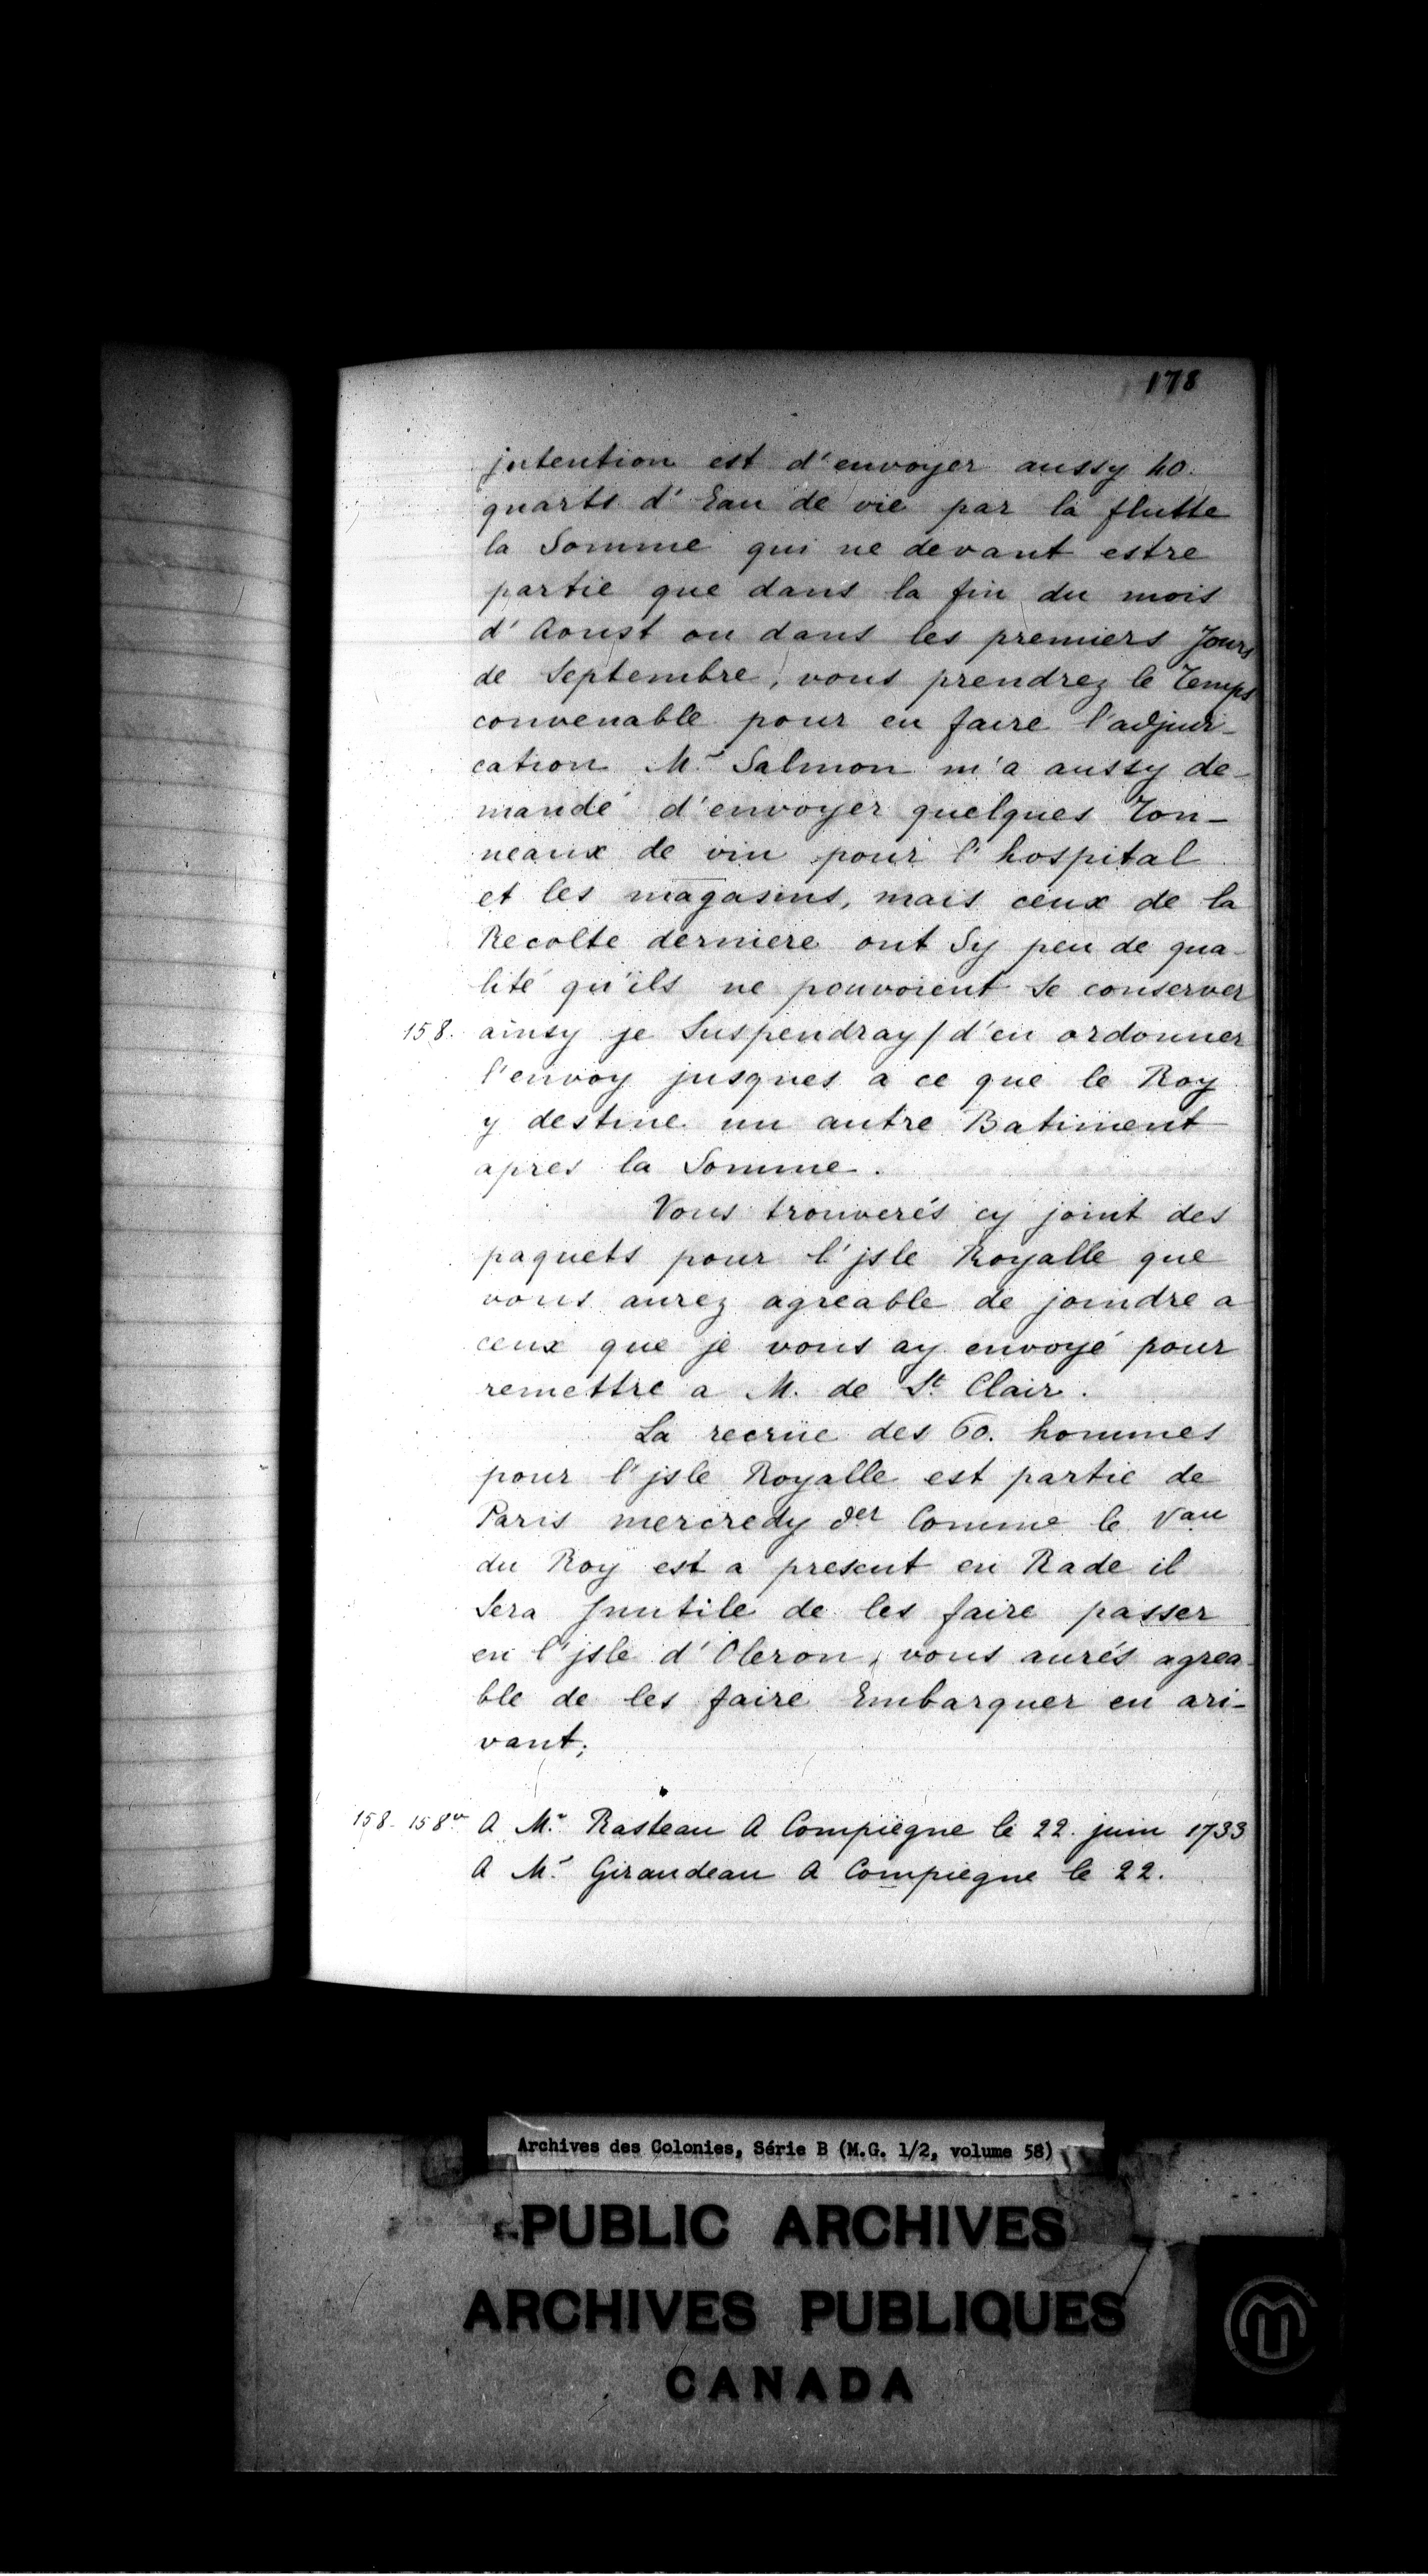 178
jntention est d'envoyer aussy 40.
quarts d'Eau de vie par la flutte
la Somme qui ne devant estre
partie que dans la fin du mois
d'Aoust ou dans les premiers Jours
de Septembre, vous prendrez le Temps
convenable pour en faire l'adjudi-
cation Mr Salmon m'a aussy de-
mandé d'envoyer quelques Ton-
neaux de vin pour l'hospital
et les magasins, mais ceux de la
Recolte derniere ont Sy peu de qua-
lité qu'ils ne pouvoient se conserver
158. ainsy je Suspendray / d'en ordonner
l'envoy jusques a ce que le Roy
y destine un autre Batiment
apres la Somme.
Vous trouverés cy joint des
paquets pour l'jsle Royalle que
vous aurez agreable de joindre a
ceux que je vous ay envoyé pour
remettre a M. de St Clair.
La recrüe des 60. hommes
pour l'jsle Royalle est partie de
Paris mercredy der Comme le Vau
du Roy est a present en Rade il
Sera Jnutile de les faire passer
en l'jsle d'Oleron, vous aurés agrea-
ble de les faire Embarquer en ari-
vant;
158-158vo A Mr. Rasteau A Compiègne le 22. juin 1733
A Mr. Giraudeau A Compiegne le 22.
Archives des Colonies, Série B (M.G. 1/2, volume 58)
PUBLIC ARCHIVES
ARCHIVES PUBLIQUES
CANADA